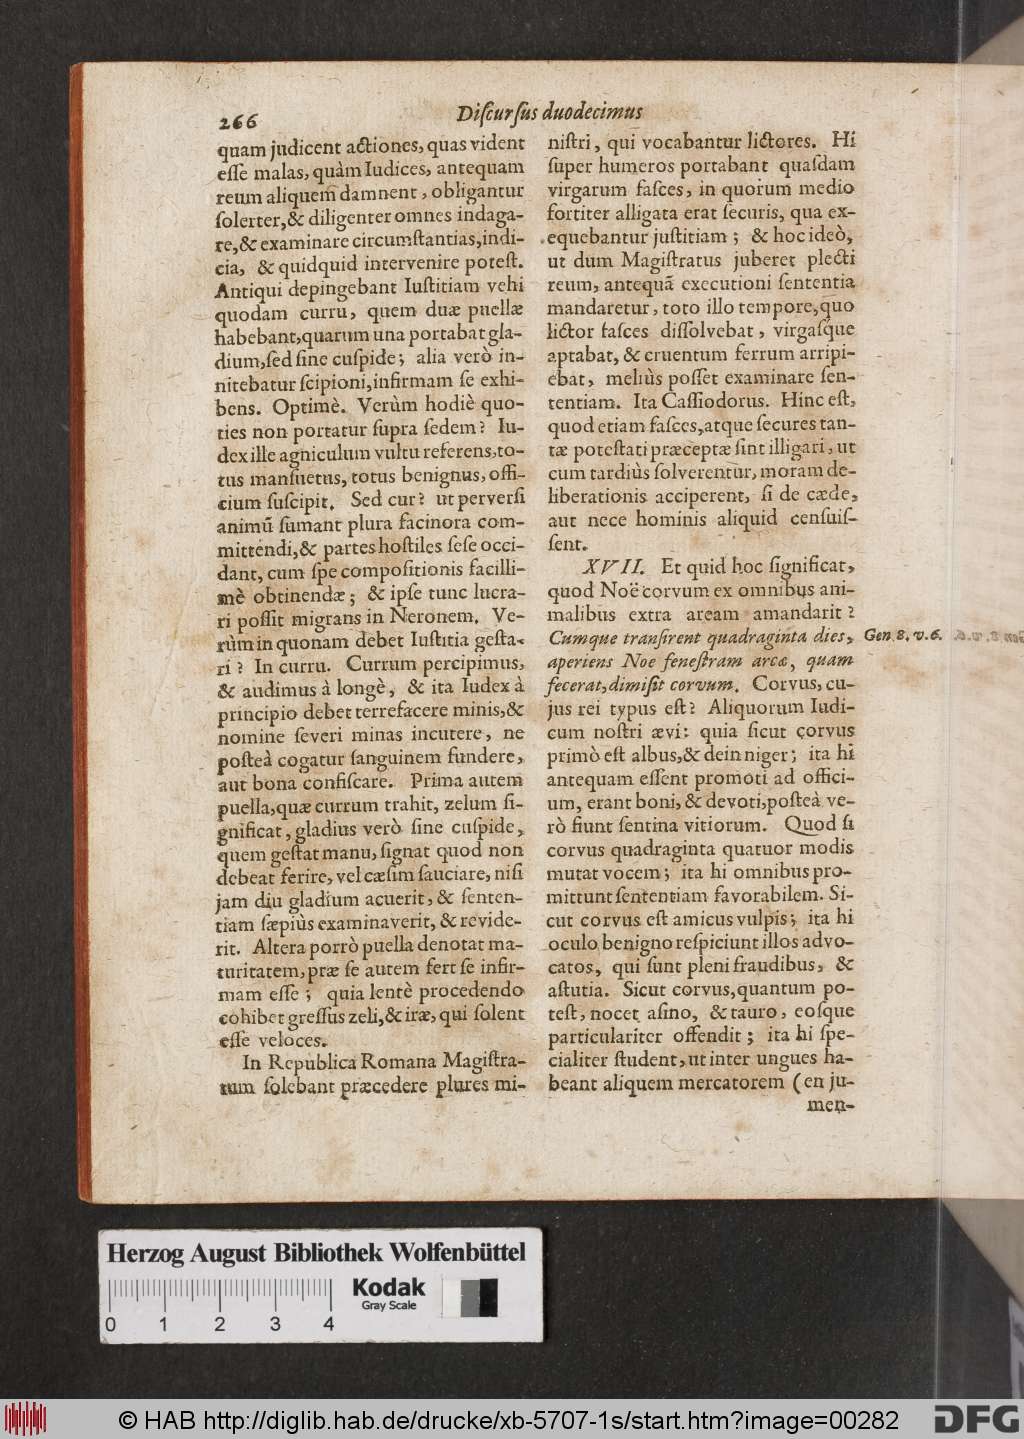 266
Diſcurſus duodecimus
quam judicent actiones, quas vident
eſſe malas, quàm Iudices, antequam
reum aliquem damnent, obligantur
ſolerter, & diligenter omnes indaga-
re, & examinare circumſtantias, indi-
cia, & quidquid intervenire poteſt.
Antiqui depingebant Iuſtitiam vehi
quodam curru, quem duæ puellæ
habebant, quarum una portabat gla-
dium, ſed ſine cuſpide; alia verò in-
nitebatur ſcipioni, infirmam ſe exhi-
bens. Optimè. Verùm hodiè quo-
ties non portatur ſupra ſedem? Iu-
dex ille agniculum vultu referens, to-
tus manſuetus, totus benignus, offi-
cium ſuſcipit. Sed cur? ut perverſi
animũ ſumant plura facinora com-
mittendi, & partes hoſtiles ſeſe occi-
dant, cum ſpe compoſitionis facilli-
mè obtinendæ; & ipſe tunc lucra-
ri poſſit migrans in Neronem. Ve-
rùm in quonam debet Iuſtitia geſta-
ri? In curru. Currum percipimus,
& audimus à longè, & ita Iudex à
principio debet terrefacere minis, &
nomine ſeveri minas incutere, ne
poſteà cogatur ſanguinem fundere,
aut bona confiſcare. Prima autem
puella, quæ currum trahit, zelum ſi-
gnificat, gladius verò ſine cuſpide,
quem geſtat manu, ſignat quod non
debeat ferire, vel cæſim ſauciare, niſi
jam diu gladium acuerit, & ſenten-
tiam ſæpiùs examinaverit, & revide-
rit. Altera porrò puella denotat ma-
turitatem, præ ſe autem fert ſe infir-
mam eſſe; quia lentè procedendo
cohibet greſſus zeli, & iræ, qui ſolent
eſſe veloces.
In Republica Romana Magiſtra-
tum ſolebant præcedere plures mi-
niſtri, qui vocabantur lictores. Hi
ſuper humeros portabant quaſdam
virgarum faſces, in quorum medio
fortiter alligata erat ſecuris, qua ex-
equebantur juſtitiam; & hoc ideò,
ut dum Magiſtratus juberet plecti
reum, antequã executioni ſententia
mandaretur, toto illo tempore, quo
lictor faſces diſſolvebat, virgaſque
aptabat, & cruentum ferrum arripi-
ebat, meliùs poſſet examinare ſen-
tentiam. Ita Caſſiodorus. Hinc eſt,
quod etiam faſces, atque ſecures tan-
tæ poteſtati præceptæ ſint illigari, ut
cum tardiùs ſolverentur, moram de-
liberationis acciperent, ſi de cæde,
aut nece hominis aliquid cenſuiſ-
ſent.
XVII. Et quid hoc ſignificat,
quod Noë corvum ex omnibus ani-
malibus extra aream amandarit?
Cumque tranſirent quadraginta dies,
Gen. 8. v. 6.
aperiens Noe feneſtram arcæ, quam
fecerat, dimiſit corvum. Corvus, cu-
jus rei typus eſt? Aliquorum Iudi-
cum noſtri ævi: quia ſicut corvus
primò eſt albus, & dein niger; ita hi
antequam eſſent promoti ad offici-
um, erant boni, & devoti, poſteà ve-
rò fiunt ſentina vitiorum. Quod ſi
corvus quadraginta quatuor modis
mutat vocem; ita hi omnibus pro-
mittunt ſententiam favorabilem. Si-
cut corvus eſt amicus vulpis; ita hi
oculo benigno reſpiciunt illos advo-
catos, qui ſunt pleni fraudibus, &
aſtutia. Sicut corvus, quantum po-
teſt, nocet aſino, & tauro, eoſque
particulariter offendit; ita hi ſpe-
cialiter ſtudent, ut inter ungues ha-
beant aliquem mercatorem (en ju-
men-
Herzog August Bibliothek Wolfenbüttel
Kodak
Gray Scale
0 1 2 3 4
© HAB http://diglib.hab.de/drucke/xb-5707-1s/start.htm?image=00282
DFG